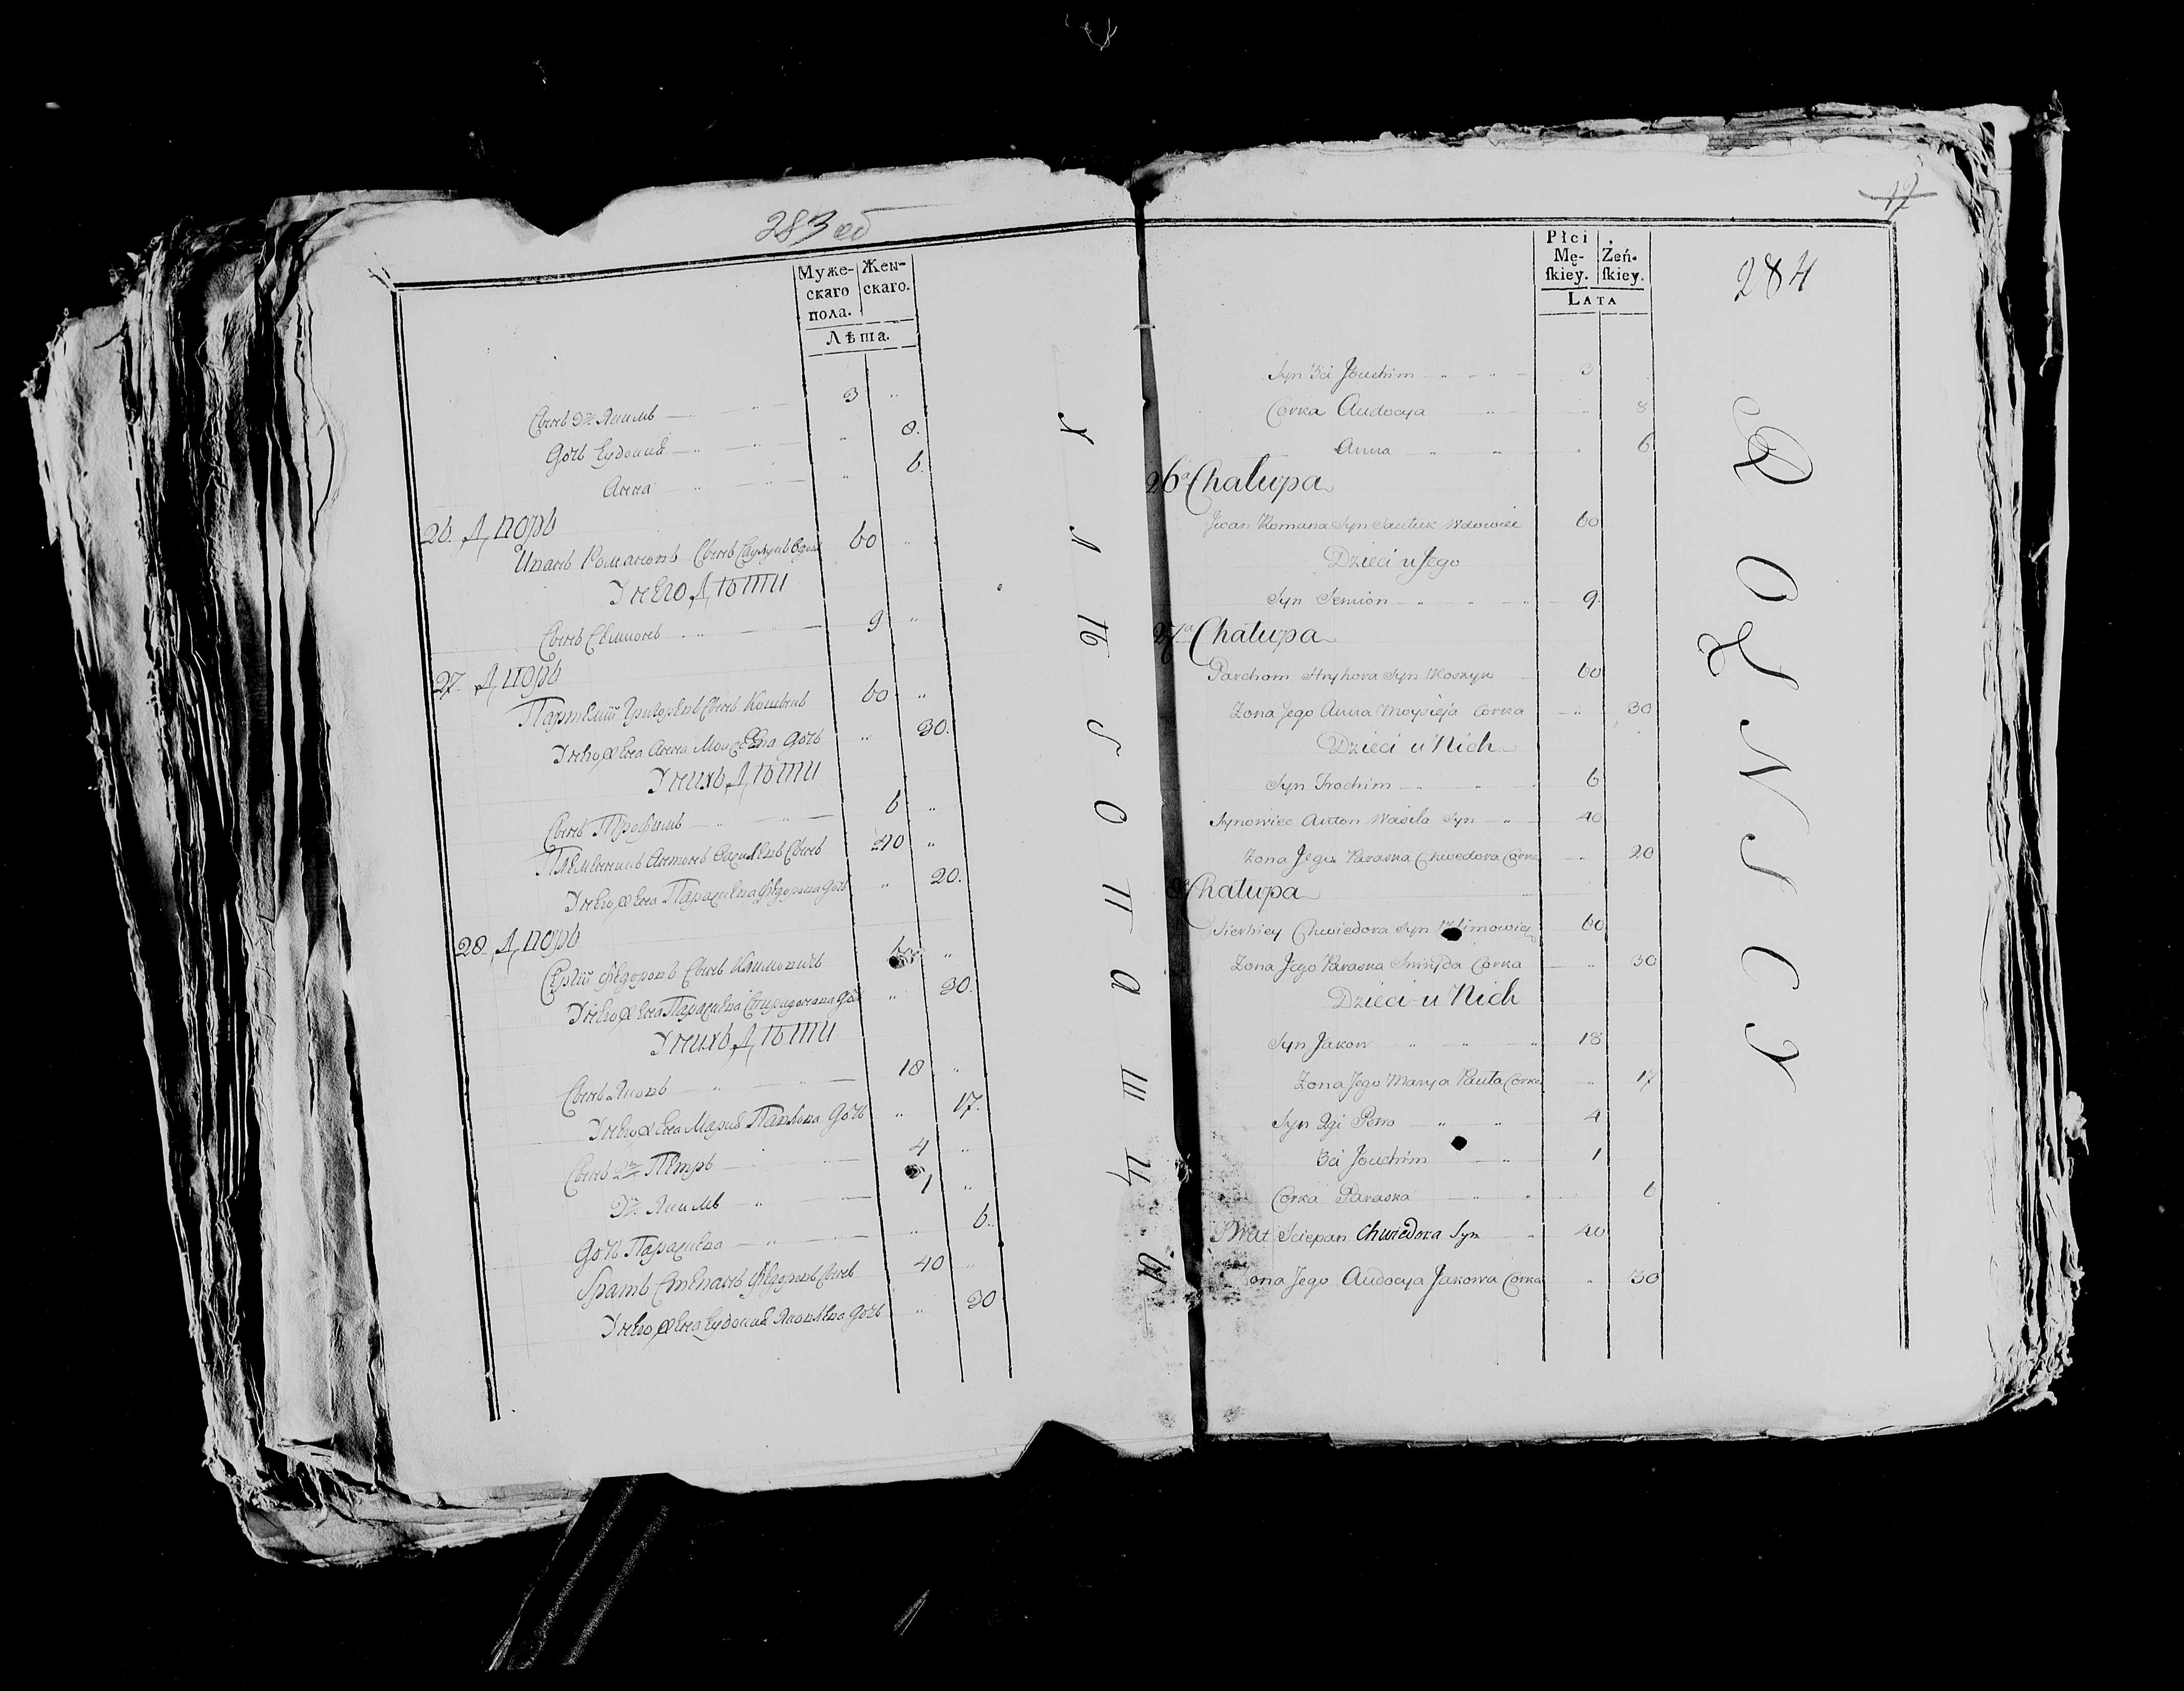 283 об
Муже-
скаго
пола.
Жен-
скаго.
Лѣта.
Сынъ 3й Якимъ 3 "
Дочь Еудокия " 8.
Анна " 6.
26. Дворъ
Иванъ Романовъ Сынъ 60 "
У него Дѣти
Сынъ Семионъ 9 "
27. Дворъ
Парѳений Григорьевъ Сынъ 60 "
У него жена Анна Моисеева дочь " 30.
У нихъ Дѣти
Сынъ Трофимъ 6 "
Племянникъ Антонъ Василевъ Сынъ 40 "
У него жена Парасцева Федорова дочь " 20.
28. Дворъ
Сергий Федоровъ Сынъ Климовичъ "
У него жена Парасцева Спиридонова дочь " 30.
У нихъ Дѣти
Сынъ Яковъ 18 "
У него жена Мария Павлова дочь " 17.
Сынъ 2й Петръ 4 "
3й Якимъ 1 "
Дочь Парасцева " 6.
Братъ Степанъ Федоровъ Сынъ 40 "
У него жена Еудокия Яковлева дочь " 30
12
284
Płci
Mę-
ſkiey.
Żeń-
ſkiey.
LATA
Syn 3ci Jouchim 3
Corka Audocya " 8
Anna " 6
26a Chałupa
Jwan Romana Syn Wdowiec 60
Dzieci u Jego
Syn Semion 9
27a Chałupa
Parchom Hryhora Syn 60
Zona Jego Anna Moysieja Corka " 30
Dzieci u Nich
Syn Trochim 6
Synowiec Anton Wasila Syn 40
Zona Jego Paraska Chwedora Corka " 20
Chałupa
Sierhiey Chwiedora Syn Klimowicz 60
Zona Jego Paraska Corka " 30
Dzieci u Nich
Syn Jakow 18
Zona Jego Marya Pauła Corka " 17
Syn 2gi Petro 4
3ci Jouchim 1
Corka Paraska 6
Brat Sciepan Chwiedora Syn 40
Zona Jego Audocya Jakowa Corka " 30